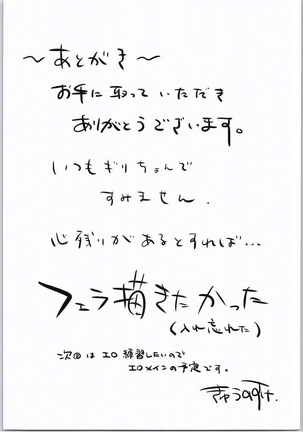 ～あとがき～
お手に取って いただき
ありがとうございます。
いつもギリちょんで
すみません.
心残りがあるとすれば…
フェラ描きたかった
(入れ忘れた)
次回は エロ 練習したいので
エロメインの予定です。